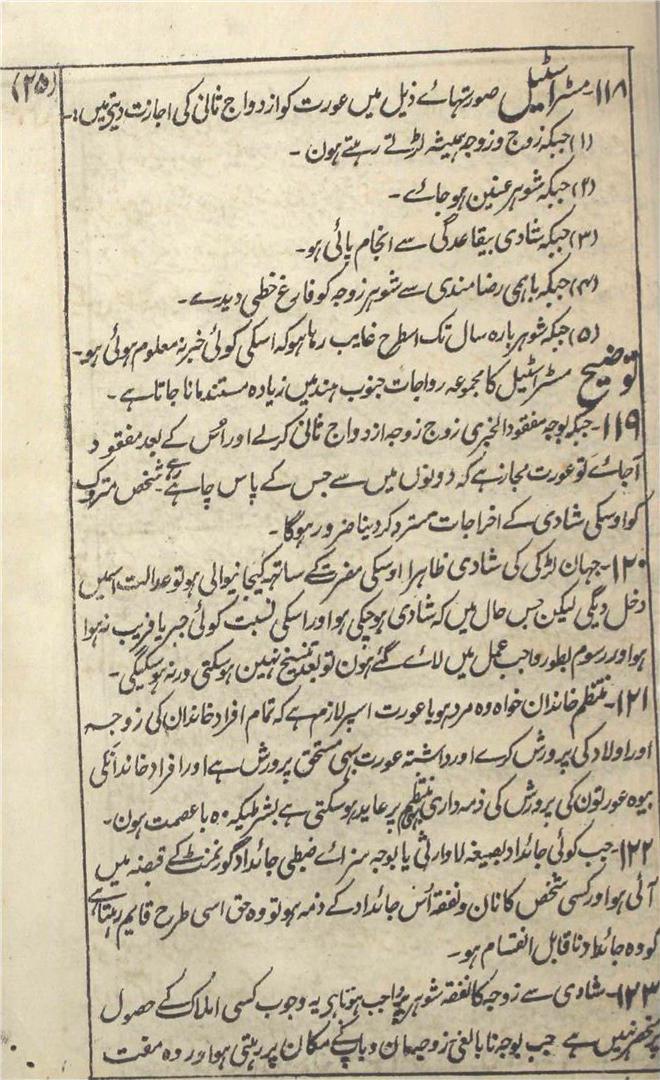 (۲۵)
۱۱۸- مسٹر اسٹیل صورتہائے ذیل میں عورت کو ازدواج ثانی کی اجازت دیتی ہیں:-
(۱) جبکہ زوج و زوجہ ہمیشہ لڑتے رہتے ہون -
(۲) جبکہ شوہر عنین ہو جائے -
(۳) جبکہ شادی بیقاعدگی سے انجام پائی ہو -
(۴) جبکہ باہمی رضامندی سے شوہر زوجہ کو فارغ خطی دیدے -
(۵) جبکہ شوہر بارہ سال تک اسطرح غایب رہا ہو کہ اسکی کوئی خبر نہ معلوم ہوئی ہو -
توضیح مسٹر اسٹیل کا مجموعہ رواجات جنوب ہند میں زیادہ مستند مانا جاتا ہے -
۱۱۹- جبکہ بوجہ مفقود الخبری زوج زوجہ ازدواج ثانی کرلے اور اُس کے بعد مفقود
آجائے تو عورت مجاز ہے کہ دونوں میں سے جس کے پاس چاہے رہے - شخص متروک
کو اوسکی شادی کے اخراجات مسترد کر دینا ضرور ہوگا -
۱۲۰- جہان لڑکی کی شادی ظاہرا اوسکی مضرت کے ساتھ کیجانیوالی ہو تو عدالت اسمیں
دخل دیگی لیکن جس حال میں کہ شادی ہو چکی ہو اور اسکی نسبت کوئی جبر یا فریب نہ ہوا
ہو اور رسوم بطور واجب عمل میں لائے گئے ہون تو بعد تنسیخ نہین ہو سکتی ورنہ ہو سکیگی -
۱۲۱- منتظم خاندان خواہ وہ مرد ہو یا عورت اسپر لازم ہے کہ تمام افراد خاندان کی زوجہ
اور اولاد کی پرورش کرے اور داشتہ عورت بھی مستحق پرورش ہے اور افراد خاندانکی
بیوہ عورتون کی پرورش کی ذمہ داری منتظم پر عاید ہو سکتی ہے بشرطیکہ وہ باعصمت ہون -
۱۲۲- جب کوئی جائداد بصیغہ لاوارثی یا بوجہ سزائے ضبطی جائداد گورنمنٹ کے قبضہ میں
آئی ہو اور کسی شخص کا نان و نفقہ اُس جائداد کے ذمہ ہو تو وہ حق اسی طرح قایم رہتا ہے
گو وہ جائداد ناقابل انقسام ہو -
۱۲۳- شادی سے زوجہ کا نفقہ شوہر پر واجب ہوتا ہے یہ وجوب کسی املاک کے حصول
پر منحصر نہیں ہے جب بوجہ نابالغی زوجہ مان و باپ کے مکان پر رہتی ہو اور وہ مفت